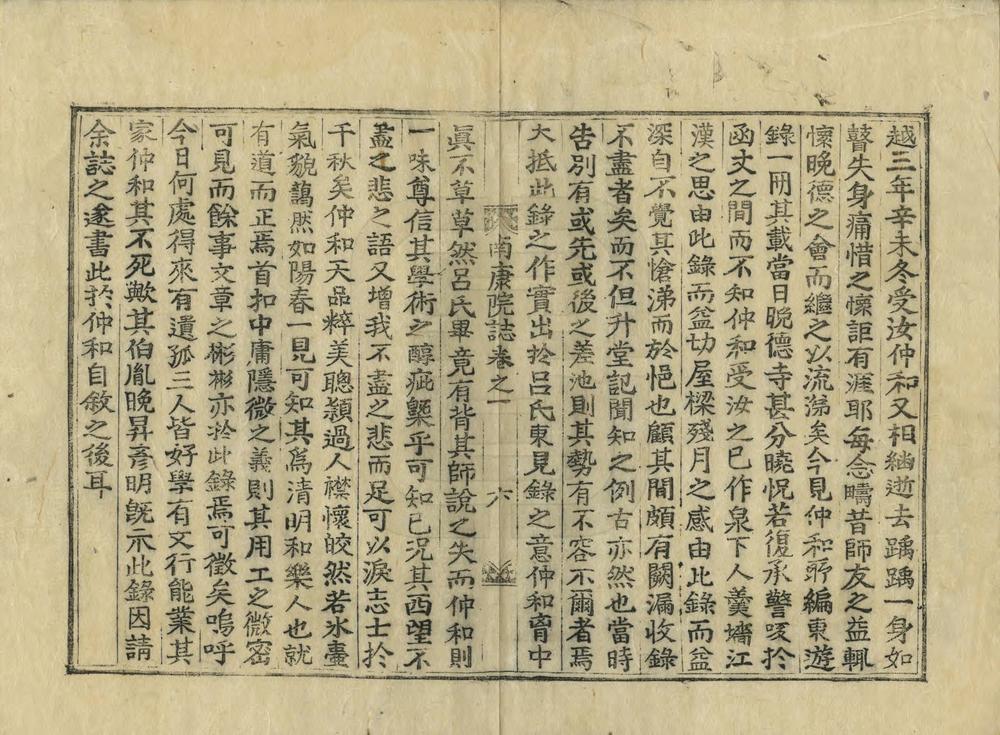 越三年辛未冬受汝仲和又相繼逝去踽踽一身如
瞽失身痛惜之懷詎有涯耶每念疇昔師友之益輒
懷晚德之會而繼之以流涕矣今見仲和所編東遊
錄一冊其載當日晚德寺甚分曉怳若復承警咳於
函丈之間而不知仲和受汝之已作泉下人羹墻江
漢之思由此錄而益切屋樑殘月之感由此錄而益
深自不覺其愴涕而於悒也顧其間頗有闕漏收錄
不盡者矣而不但升堂記聞知之例古亦然也當時
告別有或先或後之差池則其勢有不容不爾者焉
大抵此錄之作實出於呂氏東見錄之意仲和胷中
南康院誌卷之一 六
眞不草草然呂氏畢竟有背其師說之失而仲和則
一味尊信其學術之醇疵槩乎可知已況其西望不
盡之悲之語又增我不盡之悲而足可以淚志士於
千秋矣仲和天品粹美聰潁過人襟懷皎然若氷壷
氣貌藹然如陽春一見可知其爲清明和樂人也就
有道而正焉首扣中庸隱微之義則其用工之微密
可見而餘事文章之彬彬亦於此錄焉可徵矣嗚呼
今日何處得來有遺孤三人皆好學有文行能業其
家仲和其不死歟其伯胤晚昇彥明旣示此錄因請
余誌之遂書此於仲和自敘之後耳